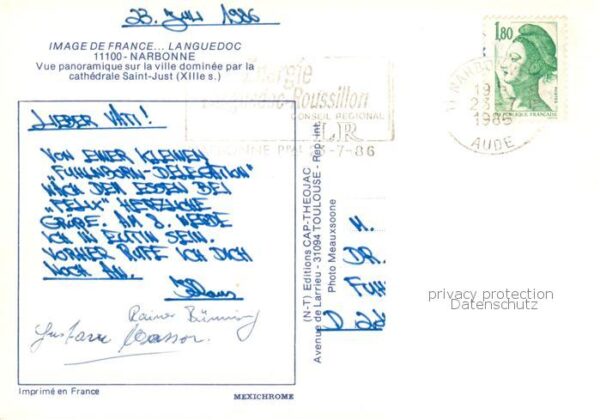 23. Juli 1986
IMAGE DE FRANCE... LANGUEDOC
11100 - NARBONNE
Vue panoramique sur la ville dominée par la
cathédrale Saint-Just (XIIIe s.)
1,80
REPUBLIQUE FRANÇAISE
Energie
Roussillon
CONSEIL REGIONAL
LR
23-7-86
19
23
1986
AUDE
LIEBER VATI!
VON EINER KLEINEN
"FUHLNBORN-DELEGATION"
NACH DEM ESSEN BEI
"FELIX" HERZLICHE
GRÜßE. AM 2. WERDE
ICH IN EUTIN SEIN.
VORHER RUFE ICH DICH
NOCH AN.
Klaus
Rainer
Gustave
(N-T) Editions CAP-THEOJAC
Avenue de Larrieu - 31094 TOULOUSE - Rep. Int.
Photo Meauxsoone
H.
DR.
FUH
D
privacy protection
Datenschutz
Imprimé en France
MEXICHROME